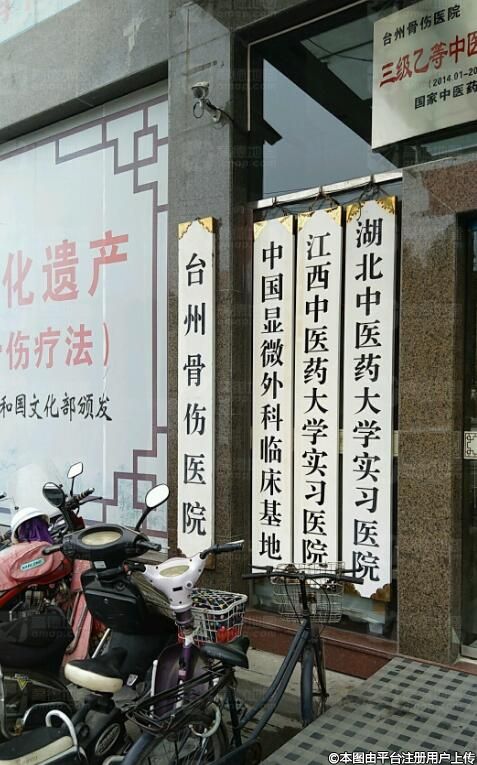 台州骨伤医院
三级乙等中医
(2014.01-20
国家中医药
化遗产
伤疗法）
和国文化部颁发
台州骨伤医院
中国显微外科临床基地
江西中医药大学实习医院
湖北中医药大学实习医院
©本图由平台注册用户上传